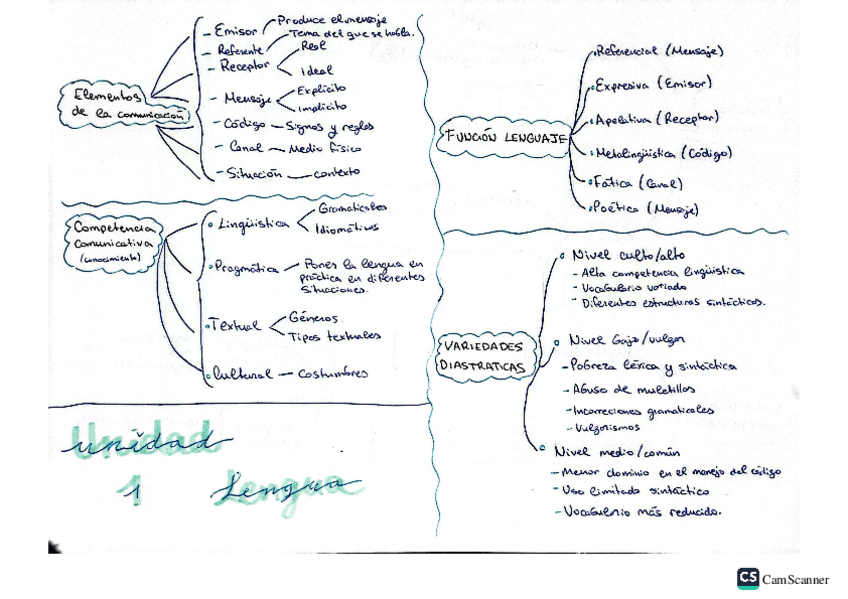 Elementos
de la comunicación
- Emisor
Produce el mensaje
- Referente
Tema del que se habla.
- Receptor
Real
Ideal
- Mensaje
Explícito
Implícito
- Código - Signos y reglas
- Canal - Medio físico
- Situación - contexto
Competencia
comunicativa
(conocimiento)
Lingüística
Gramaticales
Idiomáticos
Pragmática - Pones la lengua en
práctica en diferentes
situaciones.
Textual
Géneros
Tipos textuales
Cultural - Costumbres
Unidad
1 Lengua
FUNCIÓN LENGUAJE
Referencial (Mensaje)
Expresiva (Emisor)
Apelativa (Receptor)
Metalingüística (Código)
Fática (Canal)
Poética (Mensaje)
VARIEDADES
DIASTRATICAS
Nivel culto/alto
- Alta competencia lingüística
- Vocabulario variado
- Diferentes estructuras sintácticas.
Nivel bajo/vulgar
- Pobreza léxica y sintáctica
- Abuso de muletillas
- Incorreciones gramaticales
- Vulgarismos
Nivel medio/común
- Menor dominio en el manejo del código
- Uso limitado sintáctico
- Vocabulario más reducido.
CS CamScanner